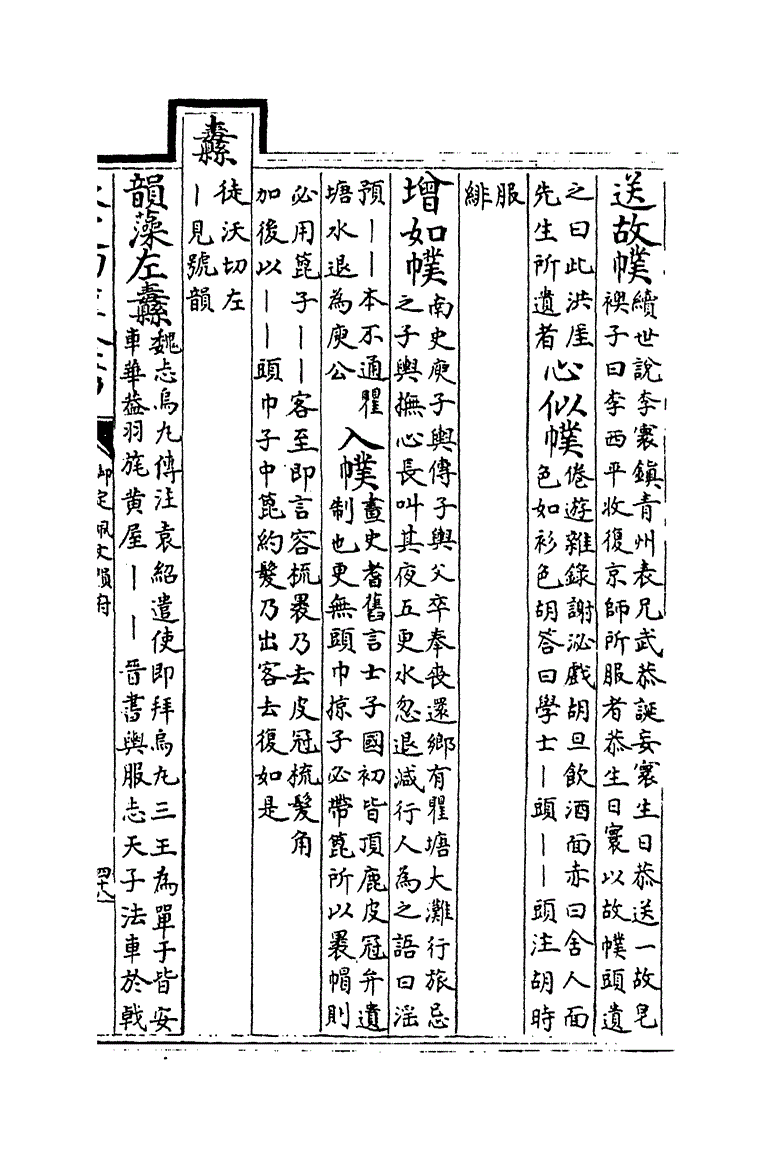 送故幞續世說李寰鎮青州表兄武恭誕妄寰生日恭送一故皂
襖子曰李西平收復京師所服者恭生日寰以故幞頭遺
之曰此洪厓
先生所遺者
心似幞倦遊雜錄謝泌戲胡旦飲酒面赤曰舍人面
色如衫色胡答曰學士丨頭丨丨頭注胡時
服
緋
增如幞南史庾子輿傳子輿父卒奉喪還鄉有瞿塘大灘行旅忌
之子輿撫心長叫其夜五更水忽退減行人為之語曰滛
預丨丨本不通瞿
塘水退為庾公
入幞畫史耆舊言士子國初皆頂鹿皮冠弁遺
制也更無頭巾掠子必帶篦所以裹帽則
必用篦子丨丨客至即言容梳裹乃去皮冠梳髮角
加後以丨丨頭巾子中篦約髮乃出客去復如是
纛
徒沃切左
丨見號韻
韻藻左纛魏志烏九傳注袁紹遣使即拜烏九三王為單于皆安
車華葢羽旄黄屋丨丨晉書輿服志天子法車於戟
御定佩文韻府
四十八